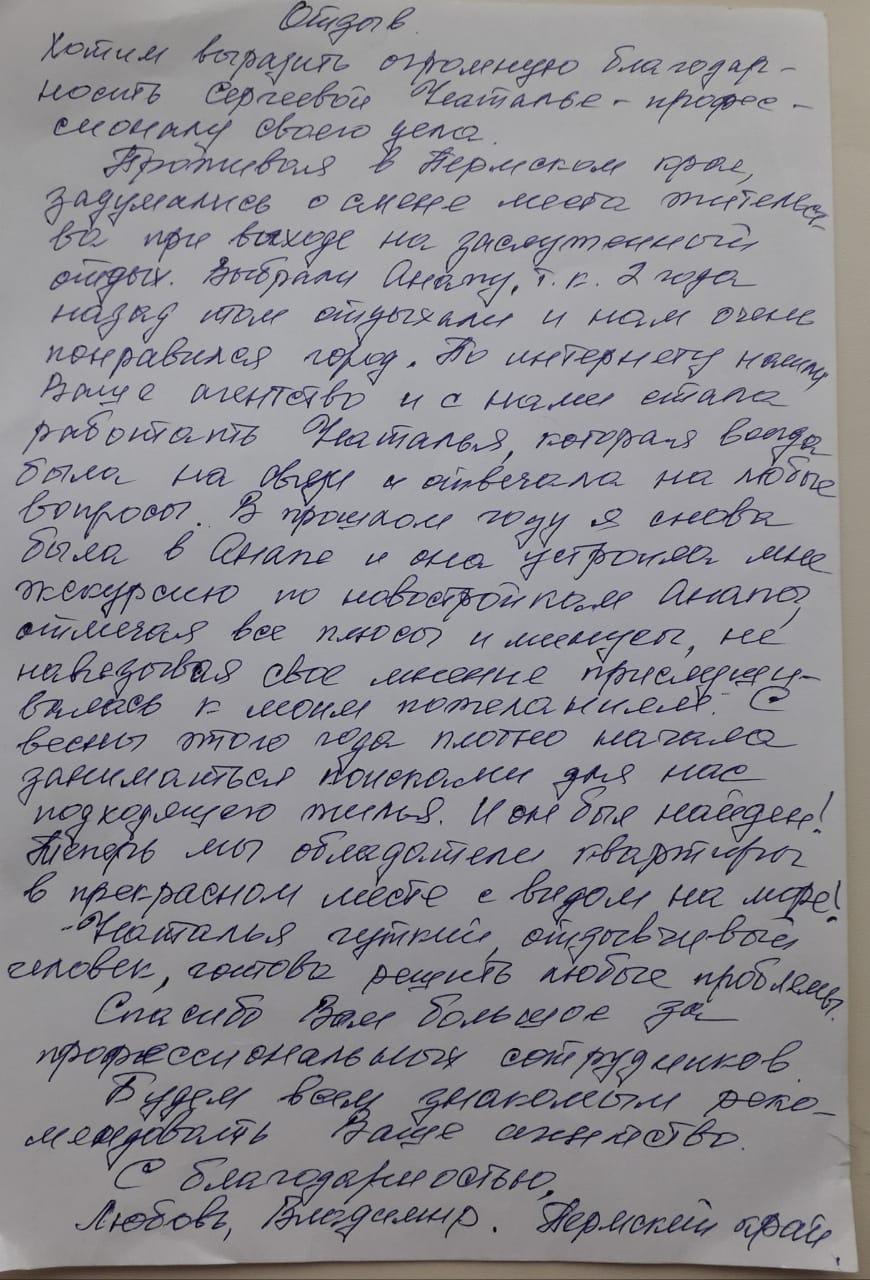 Отзыв
Хотим выразить огромную благодар-
ность Сергеевой Наталье - профес-
сионалу своего дела.
Проживая в Пермском крае,
задумались о смене места жительст-
ва при выходе на заслуженный
отдых. Выбрали Анапу, т.к. 2 года
назад там отдыхали и нам очень
понравился город. По интернету нашли
Ваше агентство и с нами стала
работать Наталья, которая всегда
была на связи и отвечала на любые
вопросы. В прошлом году я снова
была в Анапе и она устроила мне
экскурсию по новостройкам Анапы,
отмечая все плюсы и минусы, не
навязывая свое мнение прислуши-
валась к моим пожеланиям. С
весны этого года плотно начала
заниматься поисками для нас
подходящего жилья. И он был найден!
Теперь мы обладатели квартиры
в прекрасном месте с видом на море!
Наталья чуткий, отзывчивый
человек, готова решить любые проблемы.
Спасибо Вам большое за
профессиональных сотрудников.
Будем всем знакомым реко-
мендовать Ваше агентство.
С благодарностью,
Любовь, Владимир. Пермский край